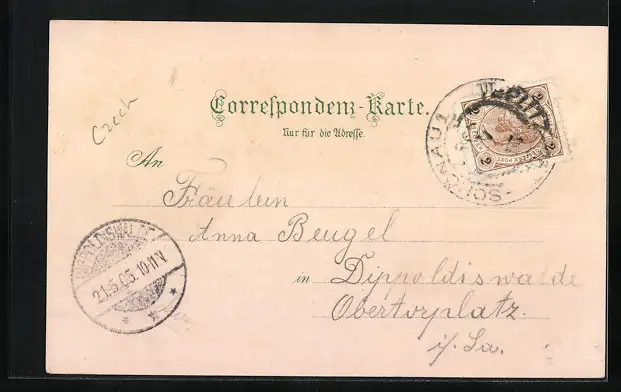 Czech
Correspondenz-Karte.
Nur für die Adresse.
An
Fräulein
Anna Beugel
in Dippoldiswalde
Obertorplatz.
i/Sa.
DIPPOLDISWALDE
21.6.05. 10-11V.
* * *
TEPLITZ
SCHÖNAU 1
2
2
2